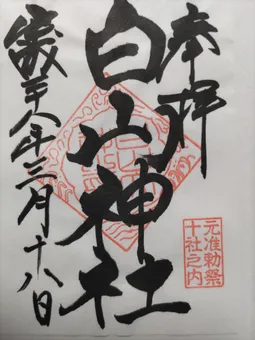 奉拝
白山神社
元准勅祭
十社之内
平成二十八年三月十八日